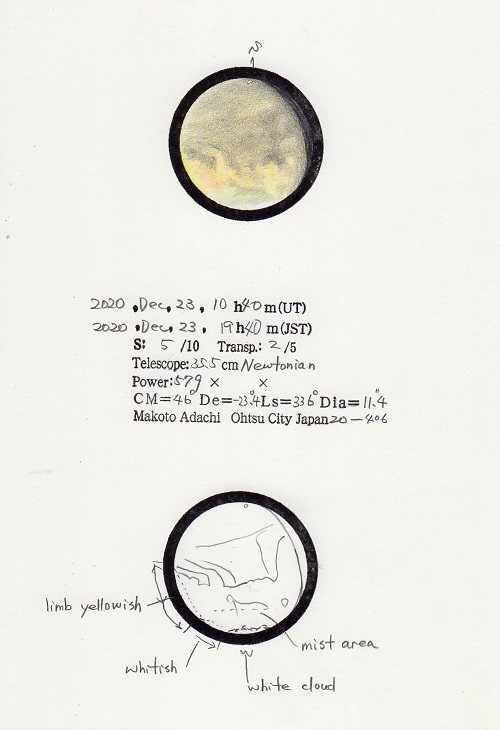 S
2020 , Dec, 23 , 10 h 40 m (UT)
2020 , Dec, 23 , 19 h 40 m (JST)
S: 5 /10 Transp.: 2 /5
Telescope: 35.5 cm Newtonian
Power: 579 × ×
CM=46° De=-23.°4 Ls=336° Dia=11.″4
Makoto Adachi Ohtsu City Japan 20-406
limb yellowish
mist area
whitish
white cloud